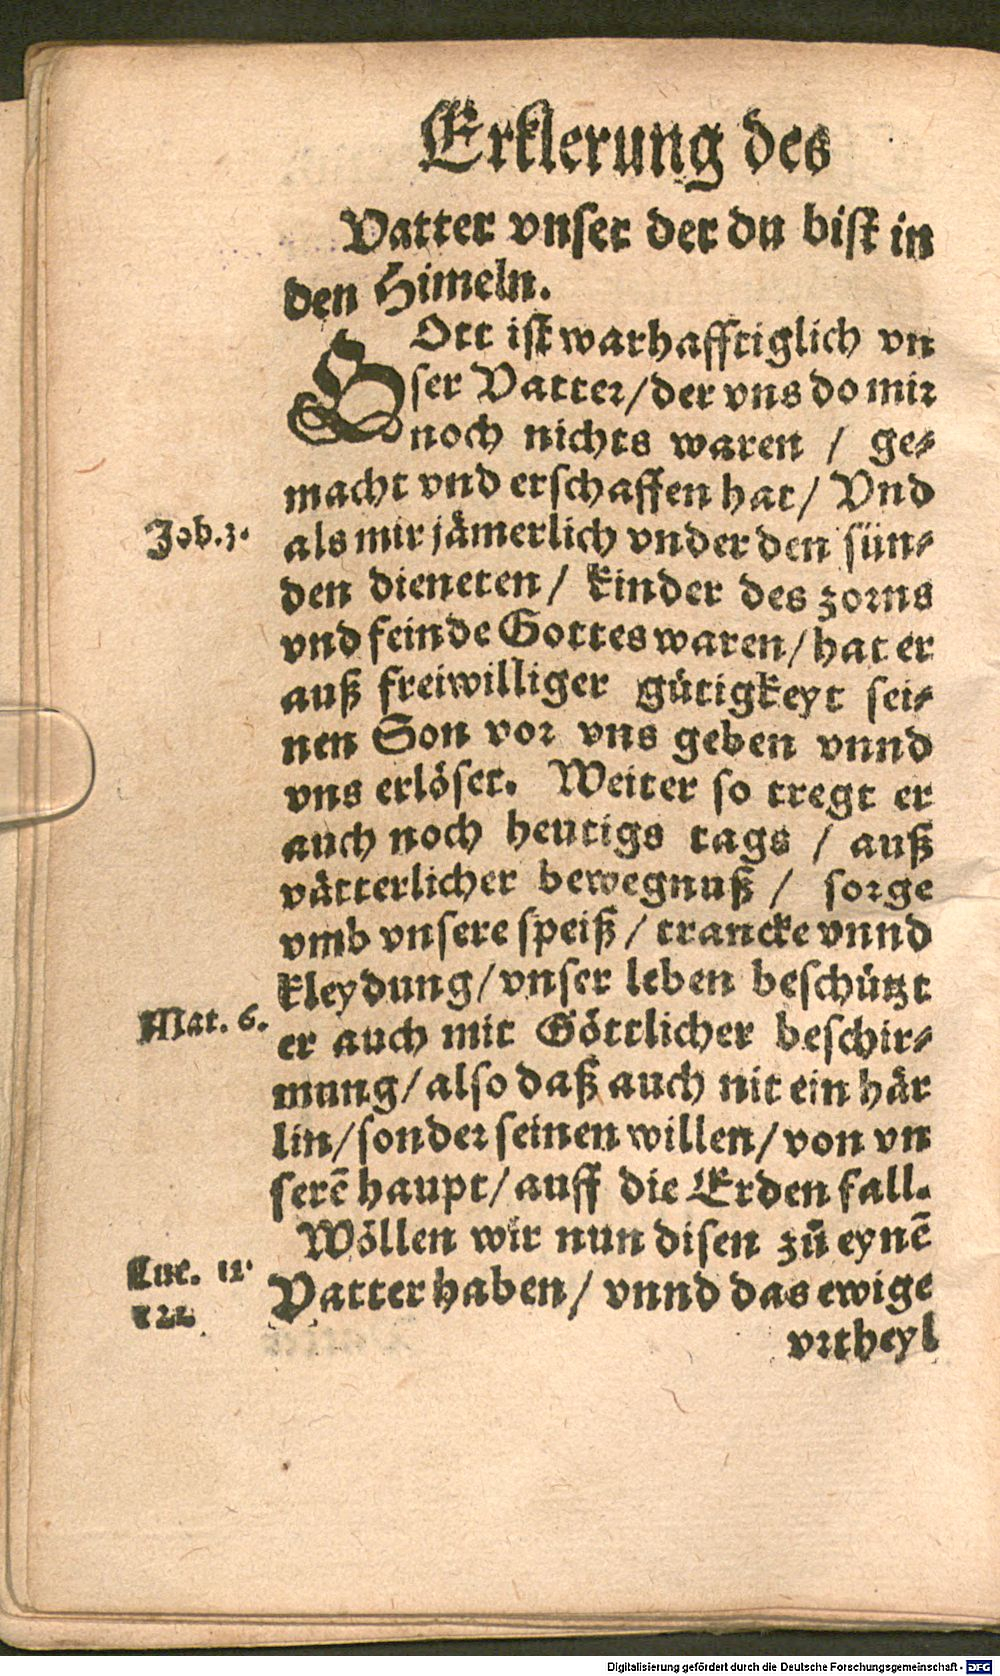 Erklerung des
Vatter vnser der du bist in
den Himeln.
GOtt ist warhafftiglich vn
ser Vatter/der vns do mir
noch nichts waren / ge-
macht vnd erschaffen hat/ Vnd
Joh.3.
als mir jämerlich vnder den sün-
den dieneten/ kinder des zorns
vnd feinde Gottes waren/hat er
auß freiwilliger gütigkeyt sei-
nen Son vor vns geben vnnd
vns erlöset. Weiter so tregt er
auch noch heutigs tags / auß
vätterlicher bewegnuß / sorge
vmb vnsere speiß / trancke vnnd
kleydung/vnser leben beschützt
Mat. 6.
er auch mit Göttlicher beschir-
mung/also daß auch nit ein här
lin/sonder seinen willen/von vn
serē haupt/auff die Erden fall.
Wöllen wir nun disen zů eynē
Luc. 12.
Vatter haben/ vnnd das ewige
vrtheyl
Digitalisierung gefördert durch die Deutsche Forschungsgemeinschaft - DFG